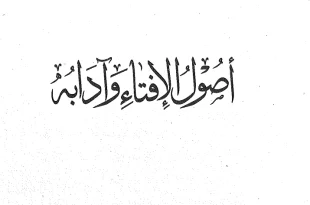 أُصُوْلُ الإِفتَاءِ وَآدَابُهُ